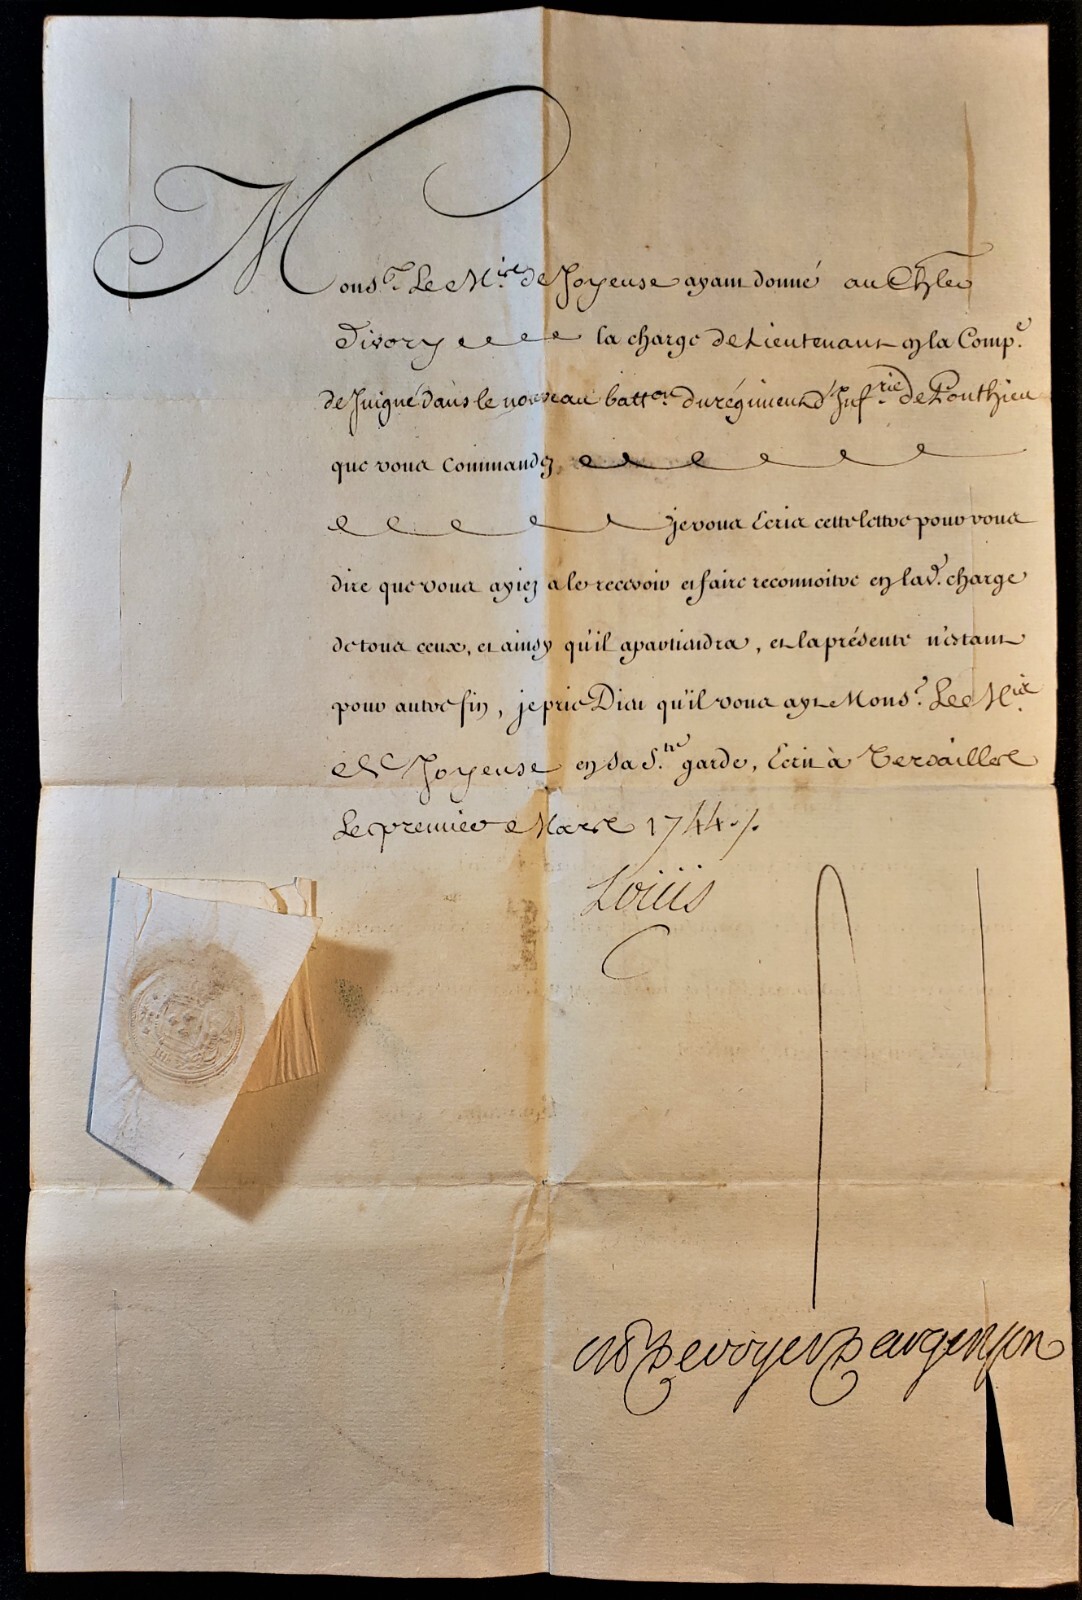 Mons.r Le M.is de Joyeuse ayant donné au Ch.ler
Divory la charge de Lieutenant en la Comp.e
de Juigné dans le nouveau batt.on du régiment d'Inf.rie de Ponthieu
que vous commandez,
je vous Ecris cette lettre pour vous
dire que vous ayiez a le recevoir et faire reconnoitre en lad.e charge
de tous ceux, et ainsy qu'il apartiendra, et la présente n'estant
pour autre fin, je prie Dieu qu'il vous ayt Mons.r Le M.is
de Joyeuse en sa S.te garde, Ecrit à Versailles
Le premier Mars 1744./.
Louis
De voyer D'argenson